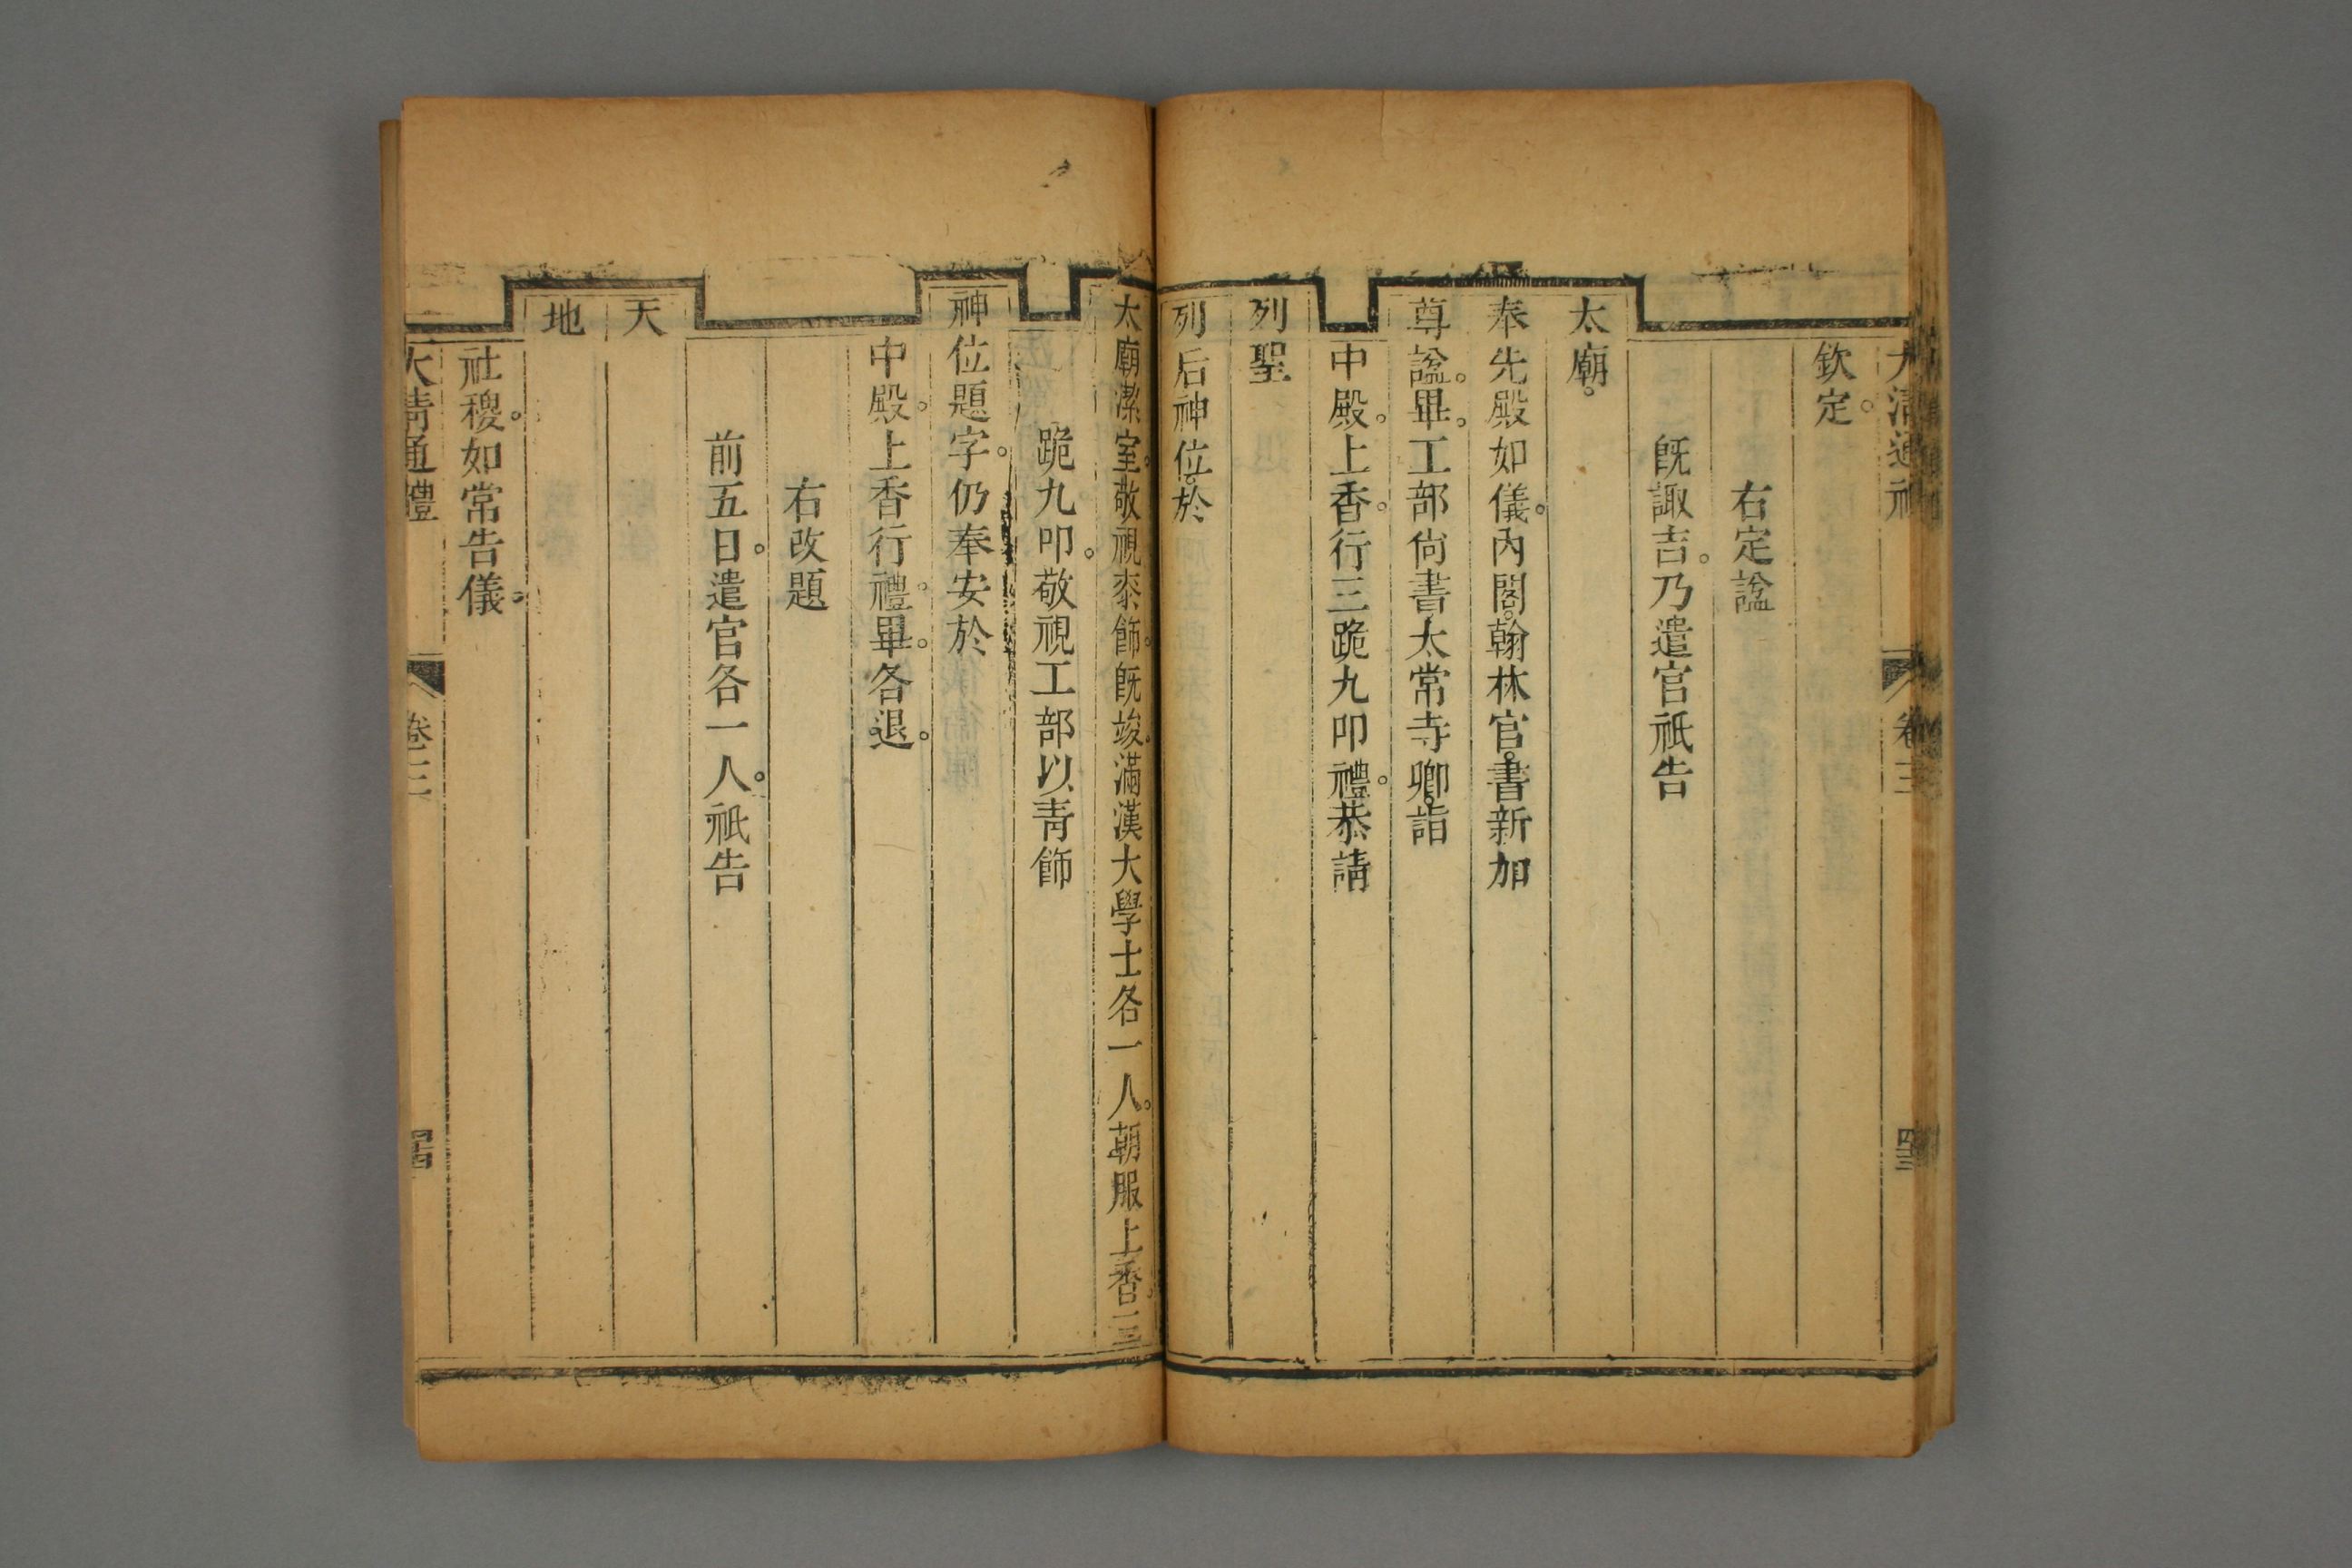 大清通禮 卷三 四十三
欽定。
右定諡
旣諏吉。乃遣官祇告
太廟。
奉先殿如儀。內閣。翰林官。書新加
尊諡。畢。工部尙書太常寺卿。詣
中殿。上香。行三跪九叩禮。恭請
列聖
列后神位。於
太廟潔室。敬視桼飾。旣竣。滿漢大學士各一人。朝服上香。三
跪九叩。敬視工部以靑飾
神位題字。仍奉安於
中殿。上香行禮。畢。各退。
右改題
前五日。遣官各一人。祇告
天
地
社稷。如常告儀。
大清通禮 卷三 四十四